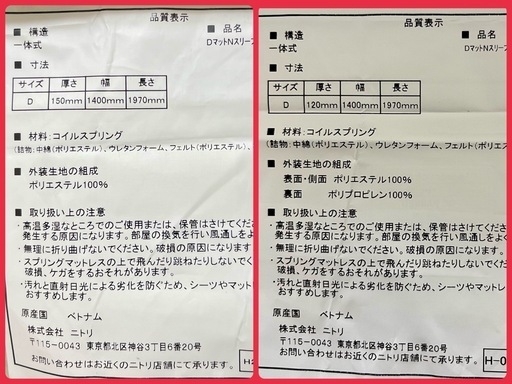 品質表示
■ 構造
■ 品名
一体式
DマットNスリープ
■ 寸法
サイズ 厚さ 幅 長さ
D 150mm 1400mm 1970mm
■ 材料:コイルスプリング
(詰物:中綿(ポリエステル)、ウレタンフォーム、フェルト(ポリエステル)、
■ 外装生地の組成
ポリエステル100%
■ 取り扱い上の注意
・高温多湿なところでのご使用または、保管はさけてください
発生する原因になります。部屋の換気を行い風通しをよ
・無理に折り曲げないでください。破損の原因になります
・スプリングマットレスの上で飛んだり跳ねたりしないで
破損、ケガをするおそれがあります。
・汚れと直射日光による劣化を防ぐため、シーツやマット
おすすめします。
原産国 ベトナム
株式会社 ニトリ
〒115-0043 東京都北区神谷3丁目6番20号
お問い合わせはお近くのニトリ店舗にて承ります。
品質表示
■ 構造
■ 品名
一体式
DマットNスリー
■ 寸法
サイズ 厚さ 幅 長さ
D 120mm 1400mm 1970mm
■ 材料:コイルスプリング
(詰物:中綿(ポリエステル)、ウレタンフォーム、フェルト(ポリエステル)、
■ 外装生地の組成
表面・側面 ポリエステル100%
裏面 ポリプロピレン100%
■ 取り扱い上の注意
・高温多湿なところでのご使用または、保管はさけてくだ
発生する原因になります。部屋の換気を行い風通しを
・無理に折り曲げないでください。破損の原因になりま
・スプリングマットレスの上で飛んだり跳ねたりしないで
破損、ケガをするおそれがあります。
・汚れと直射日光による劣化を防ぐため、シーツやマッ
おすすめします。
原産国 ベトナム
株式会社 ニトリ
〒115-0043 東京都北区神谷3丁目6番20号
お問い合わせはお近くのニトリ店舗にて承ります。
H-0